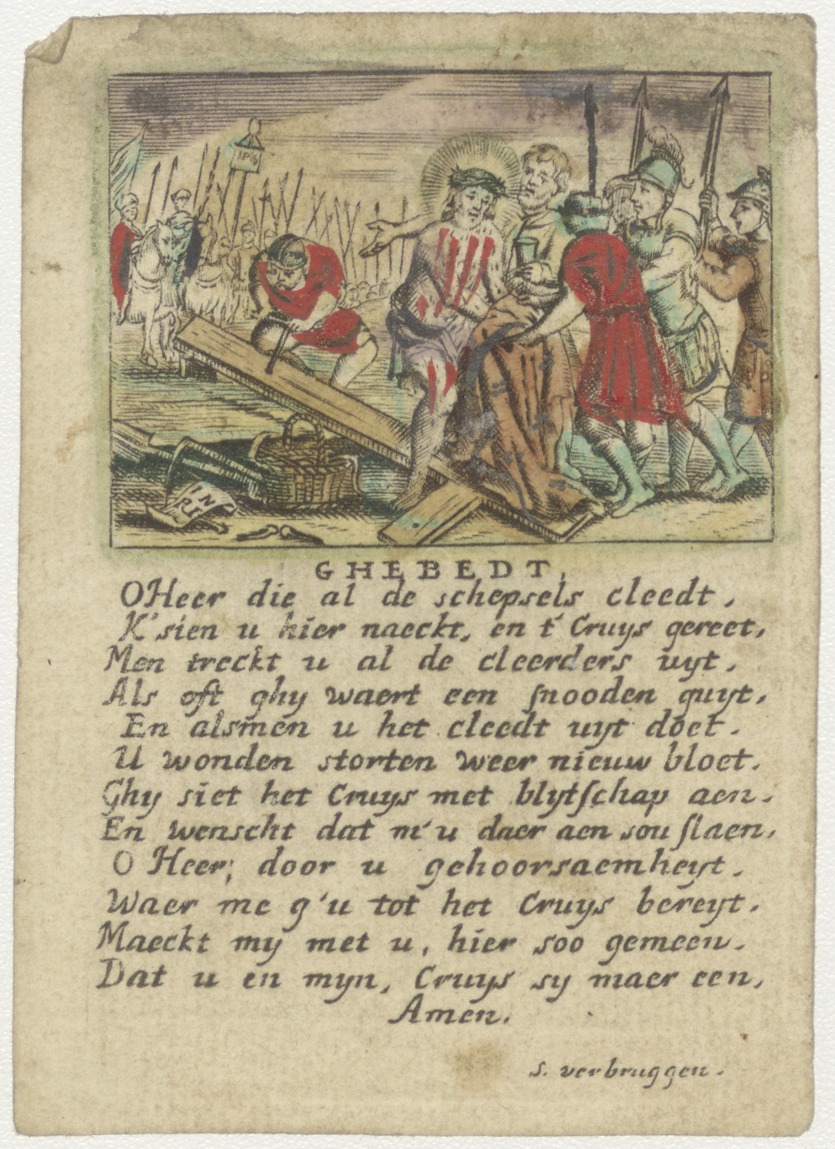 IPS
IN
RI
GHEBEDT,
O Heer die al de schepsels cleedt,
K'sien u hier naeckt, en t' Cruys gereet,
Men treckt u al de cleerders uyt,
Als oft ghy waert een snooden guyt,
En alsmen u het cleedt uyt doet.
U wonden storten weer nieuw bloet.
Ghy siet het Cruys met blytschap aen.
En wenscht dat m'u daer aen sou slaen,
O Heer; door u gehoorsaemheyt.
Waer me g'u tot het Cruys bereyt.
Maeckt my met u, hier soo gemeen.
Dat u en myn, Cruys sy maer een,
Amen.
s. verbruggen.